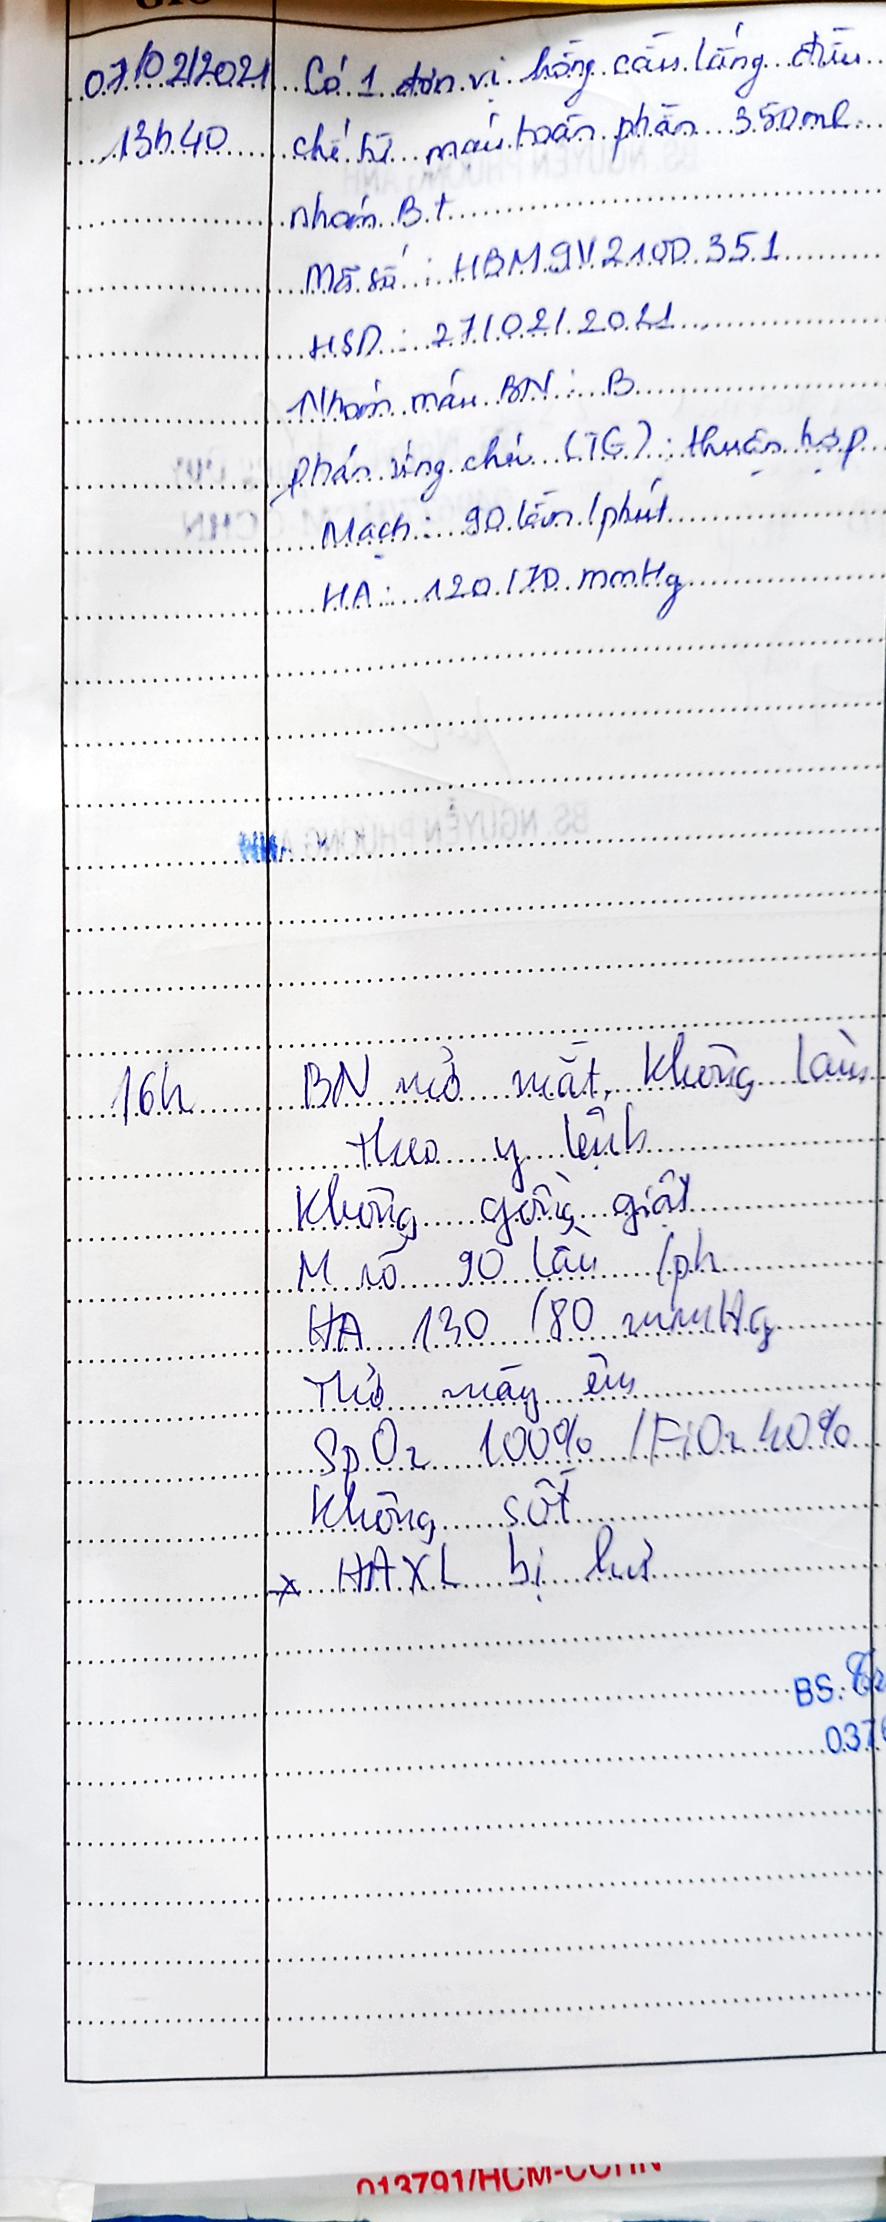 07/02/2021 Có 1 đơn vị hồng cầu lắng điều
13h40 chế từ máu toàn phần 350ml
nhóm B+
Mã số : HBM9V2100351
HSD : 27/02/2021
Nhóm máu BN : B
phản ứng chéo (TG) : thuận hợp
Mạch : 90 lần/phút
HA : 120/70 mmHg
BS. NGUYỄN PHƯƠNG ANH
16h BN mở mắt, không làm
theo y lệnh
Không gồng giật
M rõ 90 lần /ph
HA 130/80 mmHg
Thở máy êm
SpO2 100% / FiO2 40%
Không sốt
* HAXL bị hư
BS.
037
013791/HCM-CCHN